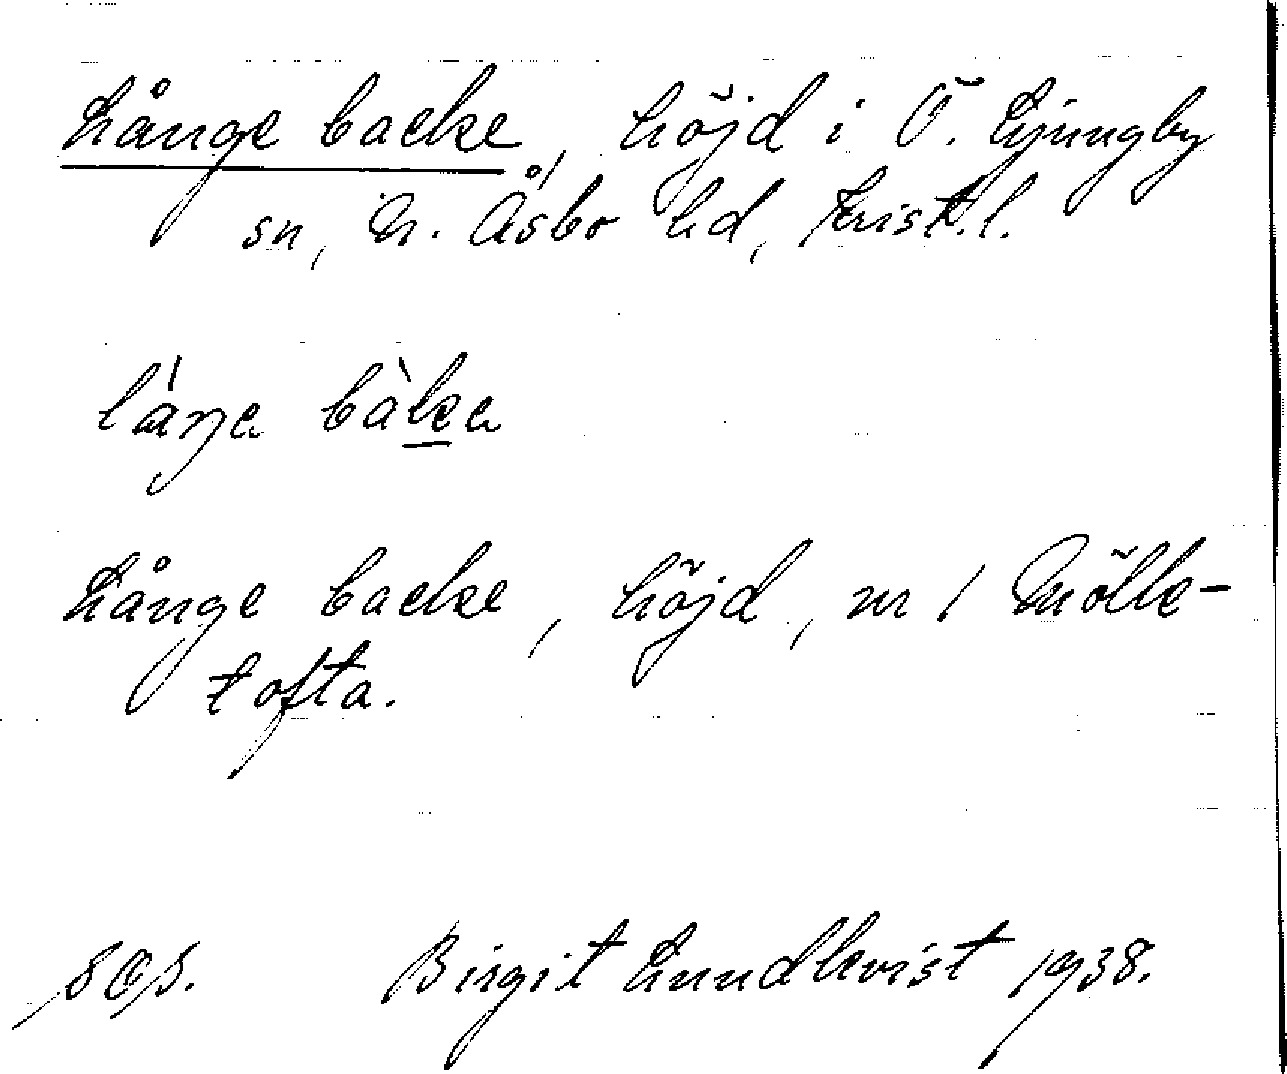 Långe backe, höjd i Ö. Ljungby
sn, N. Åsbo hd, Krist.l.
Långe backe, höjd, nr 1 Mölle-
tofta.
Birgit Lundkvist 1938.